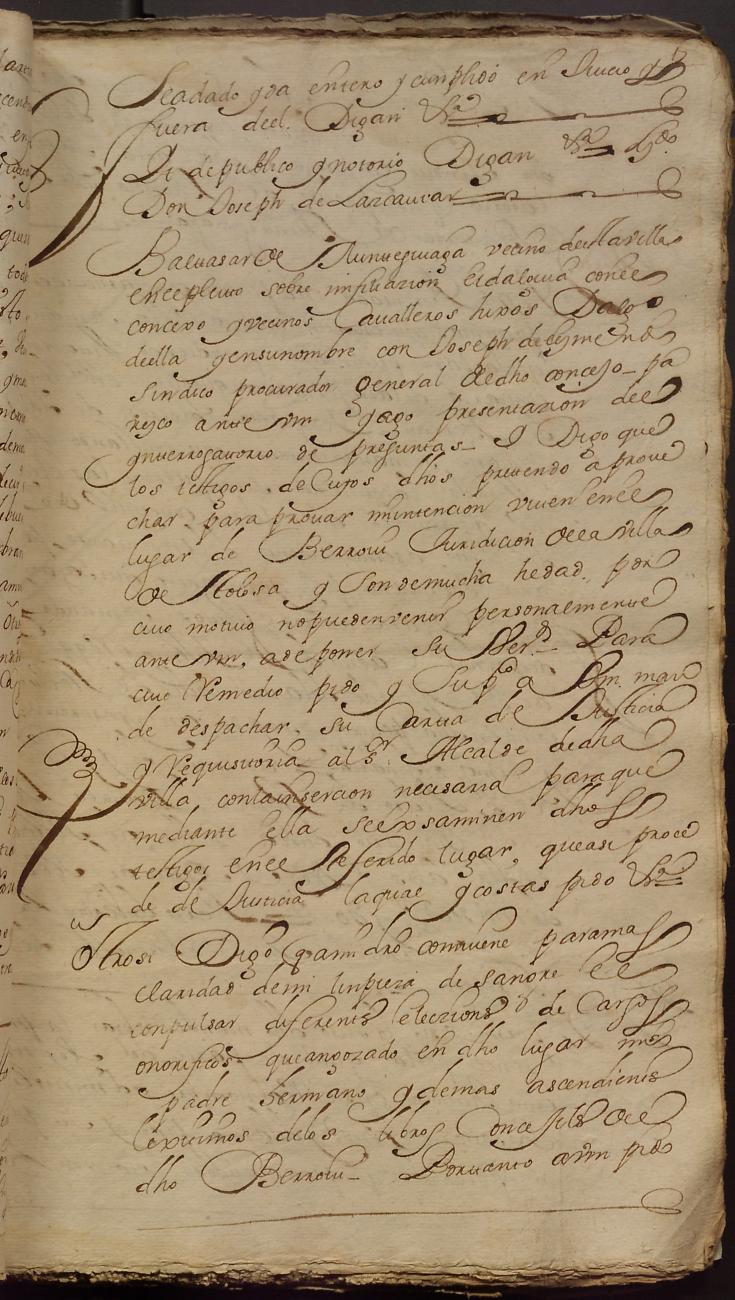 Seadado y da entero y cumplido en Juicio y
fuera del. Digan &ra
Yt de publico y notorio Digan &ra Ldo.
Don Joseph de Lazcaivar
Baltasar de vecino desta villa
en el pleito sobre infiliazion e idalguia con el
concexo y vecinos cavalleros hixos Dalgo
della y en su nombre con Joseph de
sindico procurador general de dho concejo pa
rezco ante vm y ago presentazion del
ynterrogatorio de preguntas Y Digo que
los testigos de cuyos dhos pretendo aprove
char para provar mi intencion viven en el
lugar de Berrovi Juridicion de la villa
de Tolosa y son de mucha hedad, por
cuio motivo no pueden venir personalmente
ante vm, a deponer su Ver.d Para
cuio Remedio pido y Supco a Vm. man
de despachar su Carta de Justicia
y Requisitoria al Sr. Alcalde de dha
villa con la insercion necesaria para que
mediante ella se exsaminen dhos
testigos en el Referido lugar, que asi proce
de de Justicia la qual y costas pido &ra
Otrosi Digo q a mi dro conviene para mas
claridad de mi limpieza de sangre el
conpulsar diferentes elecziones de Cargos
onorificos que an gozado en dho lugar mis
padre hermano y demas ascendientes
lexitimos de los libros Concejiles del
dho Berrovi Por tanto a vm pido